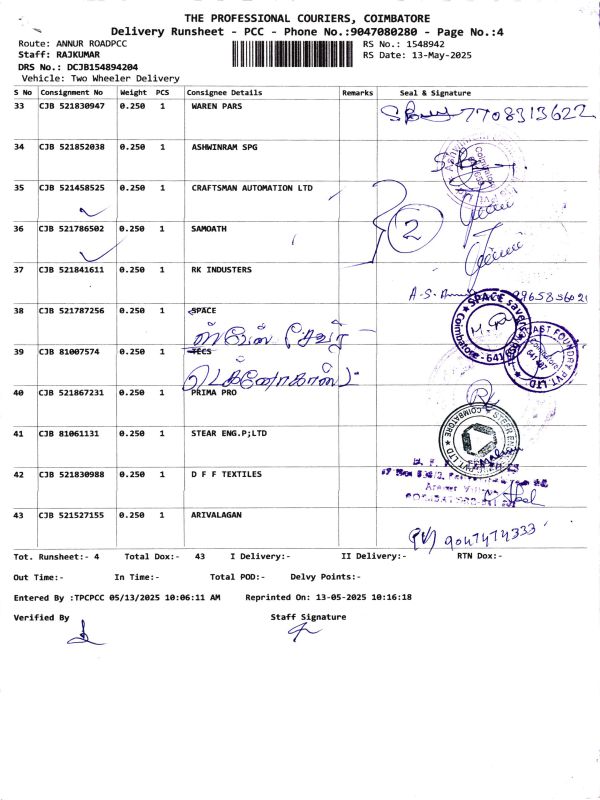 THE PROFESSIONAL COURIERS, COIMBATORE
Delivery Runsheet - PCC - Phone No.:9047080280 - Page No.:4
Route: ANNUR ROADPCC RS No.: 1548942
Staff: RAJKUMAR RS Date: 13-May-2025
DRS No.: DCJB154894204
Vehicle: Two Wheeler Delivery
S No Consignment No Weight PCS Consignee Details Remarks Seal & Signature
33 CJB 521830947 0.250 1 WAREN PARS 7708313622
34 CJB 521852038 0.250 1 ASHWINRAM SPG
35 CJB 521458525 0.250 1 CRAFTSMAN AUTOMATION LTD
2
36 CJB 521786502 0.250 1 SAMOATH
37 CJB 521841611 0.250 1 RK INDUSTERS
A-S.
38 CJB 521787256 0.250 1 SPACE
SPACE Savers Coimbatore - 641
39 CJB 81007574 0.250 1 TECS
FAST FOUNDRY PVT. LTD Coimbatore
40 CJB 521867231 0.250 1 PRIMA PRO
41 CJB 81061131 0.250 1 STEAR ENG.P;LTD
42 CJB 521830988 0.250 1 D F F TEXTILES
43 CJB 521527155 0.250 1 ARIVALAGAN
9047474333
Tot. Runsheet:- 4 Total Dox:- 43 I Delivery:- II Delivery:- RTN Dox:-
Out Time:- In Time:- Total POD:- Delvy Points:-
Entered By :TPCPCC 05/13/2025 10:06:11 AM Reprinted On: 13-05-2025 10:16:18
Verified By Staff Signature